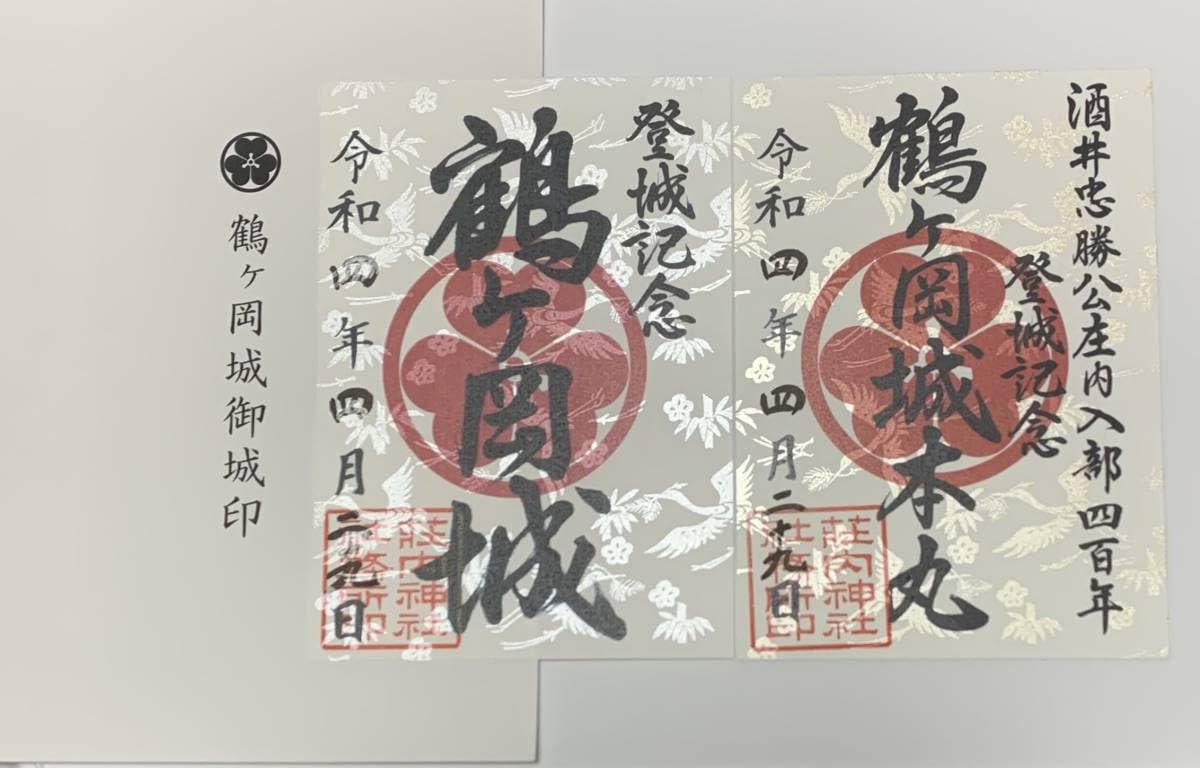 酒井忠勝公庄内入部四百年
登城記念
鶴ヶ岡城本丸
令和四年四月二十九日
荘内神社
社務所印
登城記念
鶴ヶ岡城
令和四年四月二十九日
荘内神社
社務所印
鶴ヶ岡城御城印